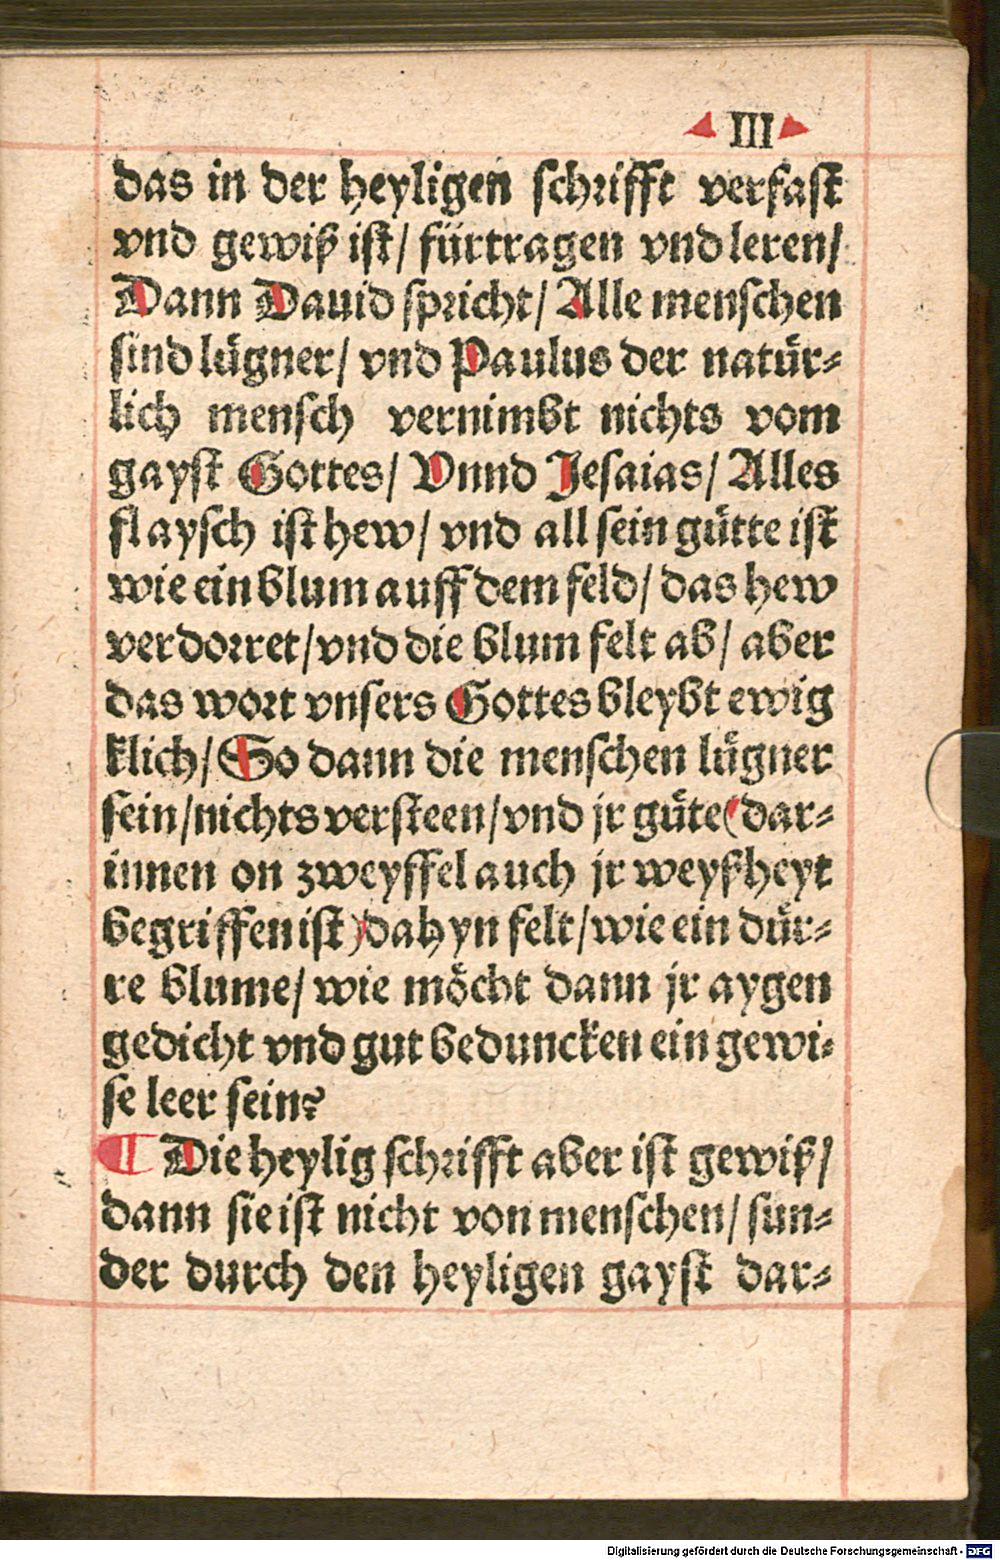 III
das in der heyligen schrifft verfast
vnd gewiß ist/ fürtragen vnd leren/
Dann Dauid spricht/ Alle menschen
sind lügner/ vnd Paulus der natür⸗
lich mensch vernimbt nichts vom
gayst Gottes/ Vnnd Jesaias/ Alles
flaysch ist hew/ vnd all sein gütte ist
wie ein blum auff dem feld/ das hew
verdorret/ vnd die blum felt ab/ aber
das wort vnsers Gottes bleybt ewig
klich/ So dann die menschen lügner
sein/ nichts versteen/ vnd jr güte (dar⸗
innen on zweyffel auch jr weyßheyt
begriffen ist) dahyn felt/ wie ein dür⸗
re blume/ wie möcht dann jr aygen
gedicht vnd gut beduncken ein gewi⸗
se leer sein?
¶ Die heylig schrifft aber ist gewiß/
dann sie ist nicht von menschen/ sun⸗
der durch den heyligen gayst dar⸗
Digitalisierung gefördert durch die Deutsche Forschungsgemeinschaft - DFG